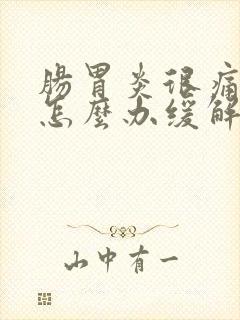 腸胃炎很痛
怎麼办缓解
山中有一